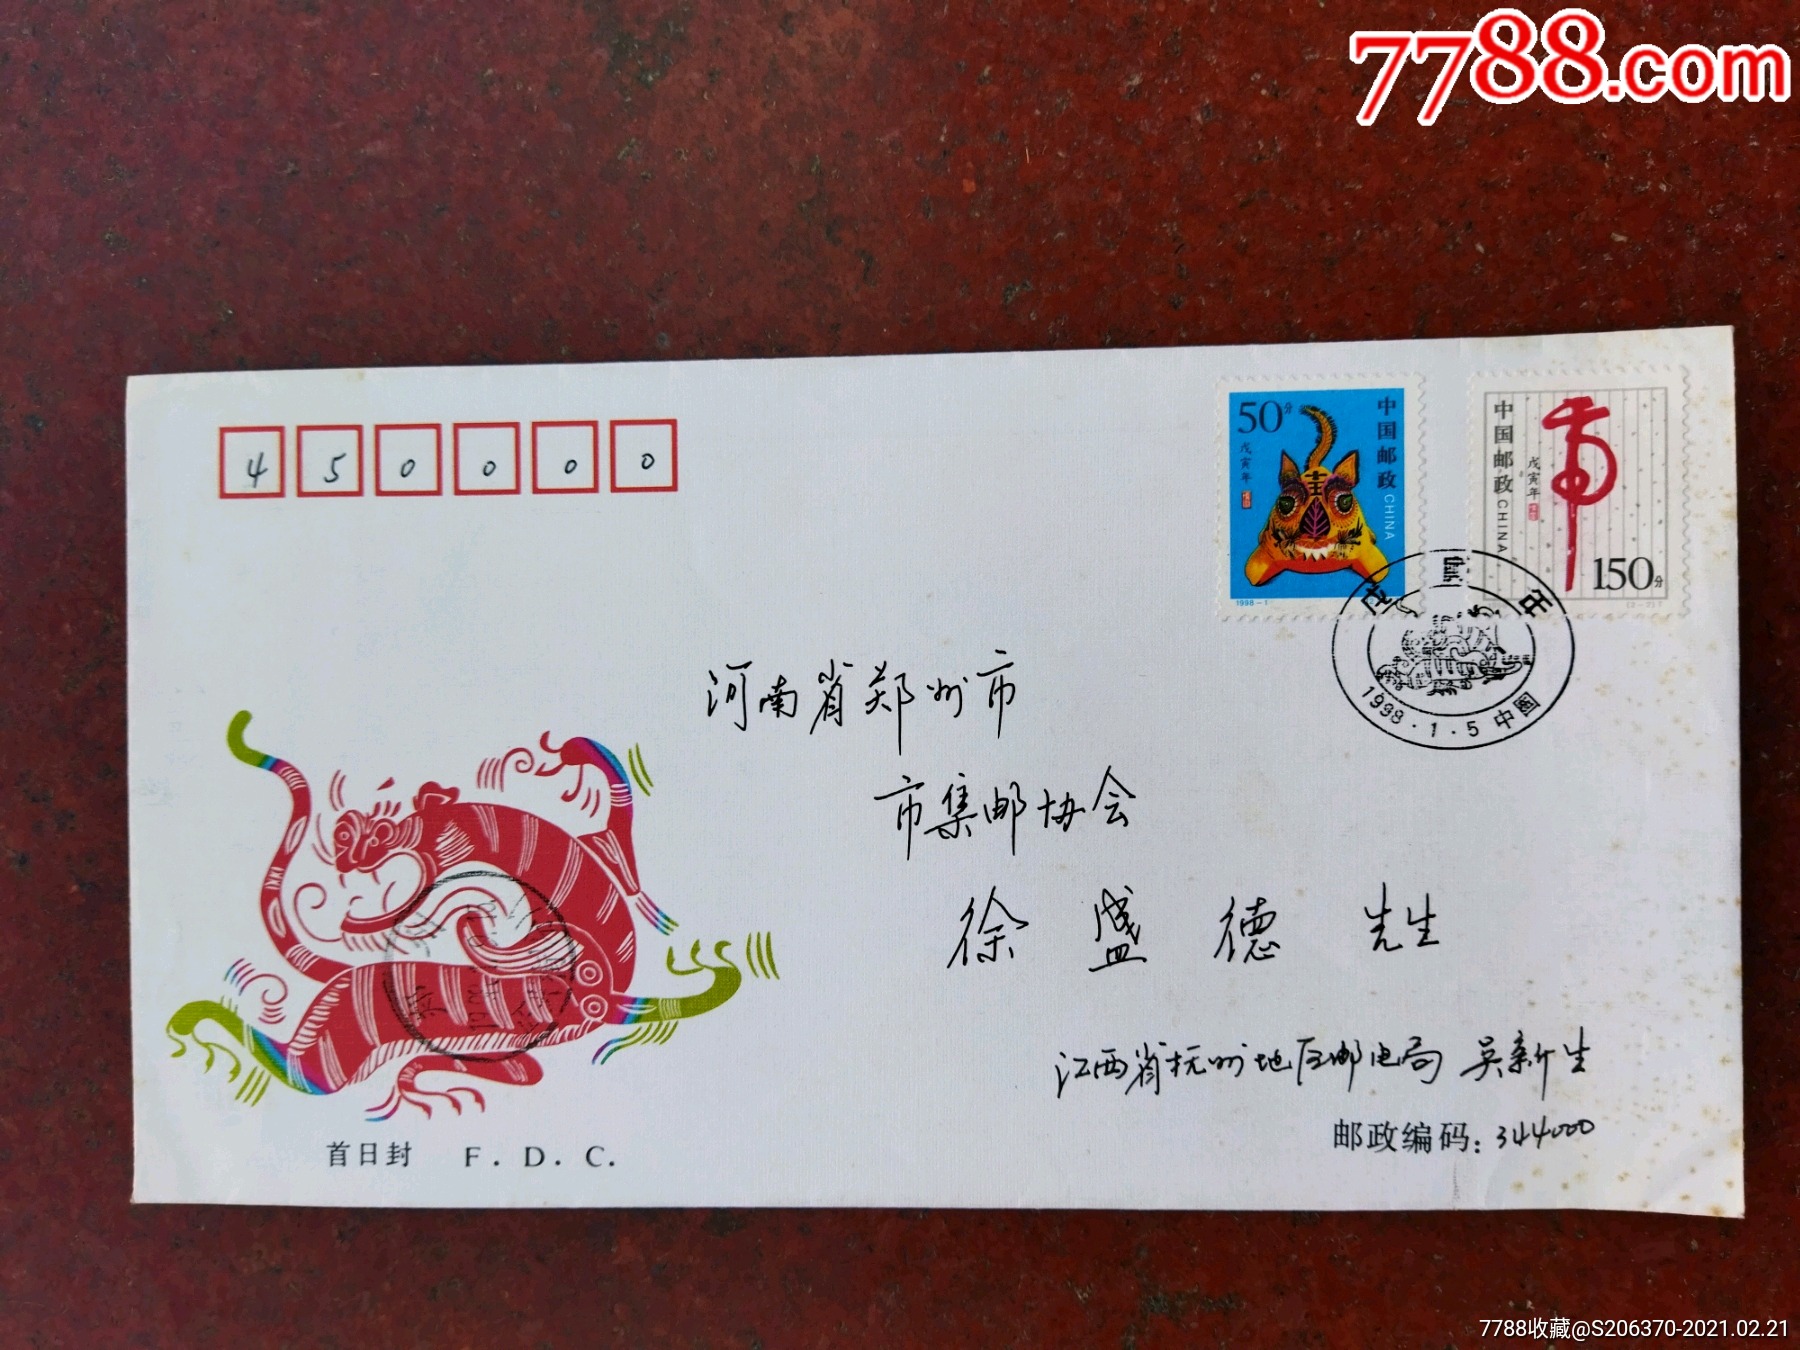 7788.com
4 5 0 0 0 0
50分
戊寅年
中国邮政 CHINA
1998-1
中国邮政 CHINA
戊寅年
150分
(2-2)T
戊寅年
1998·1·5 中国
河南省郑州市
市集邮协会
徐盛德 先生
江西省抚州地区邮电局 吴新生
邮政编码：344000
首日封 F.D.C.
7788收藏@S206370-2021.02.21